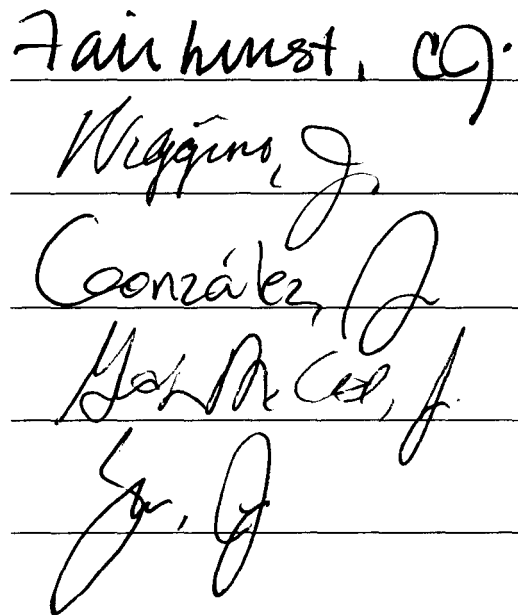 Fairhurst, CJ.
Wiggins, J.
González, J
Gordon McCloud, J.
Yu, J